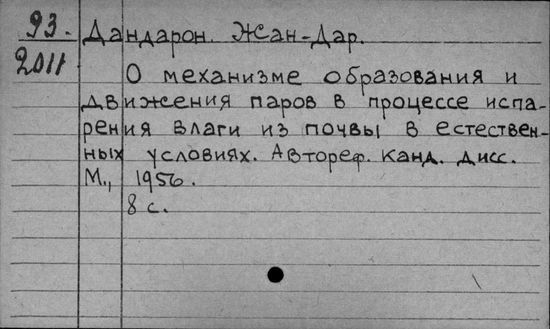 93. Дандарон. Жан-Дар.
2011
О механизме образования и
движения паров в процессе испа-
рения влаги из почвы в естествен-
ных условиях. Автореф. канд. дисс.
М., 1956.
8 с.